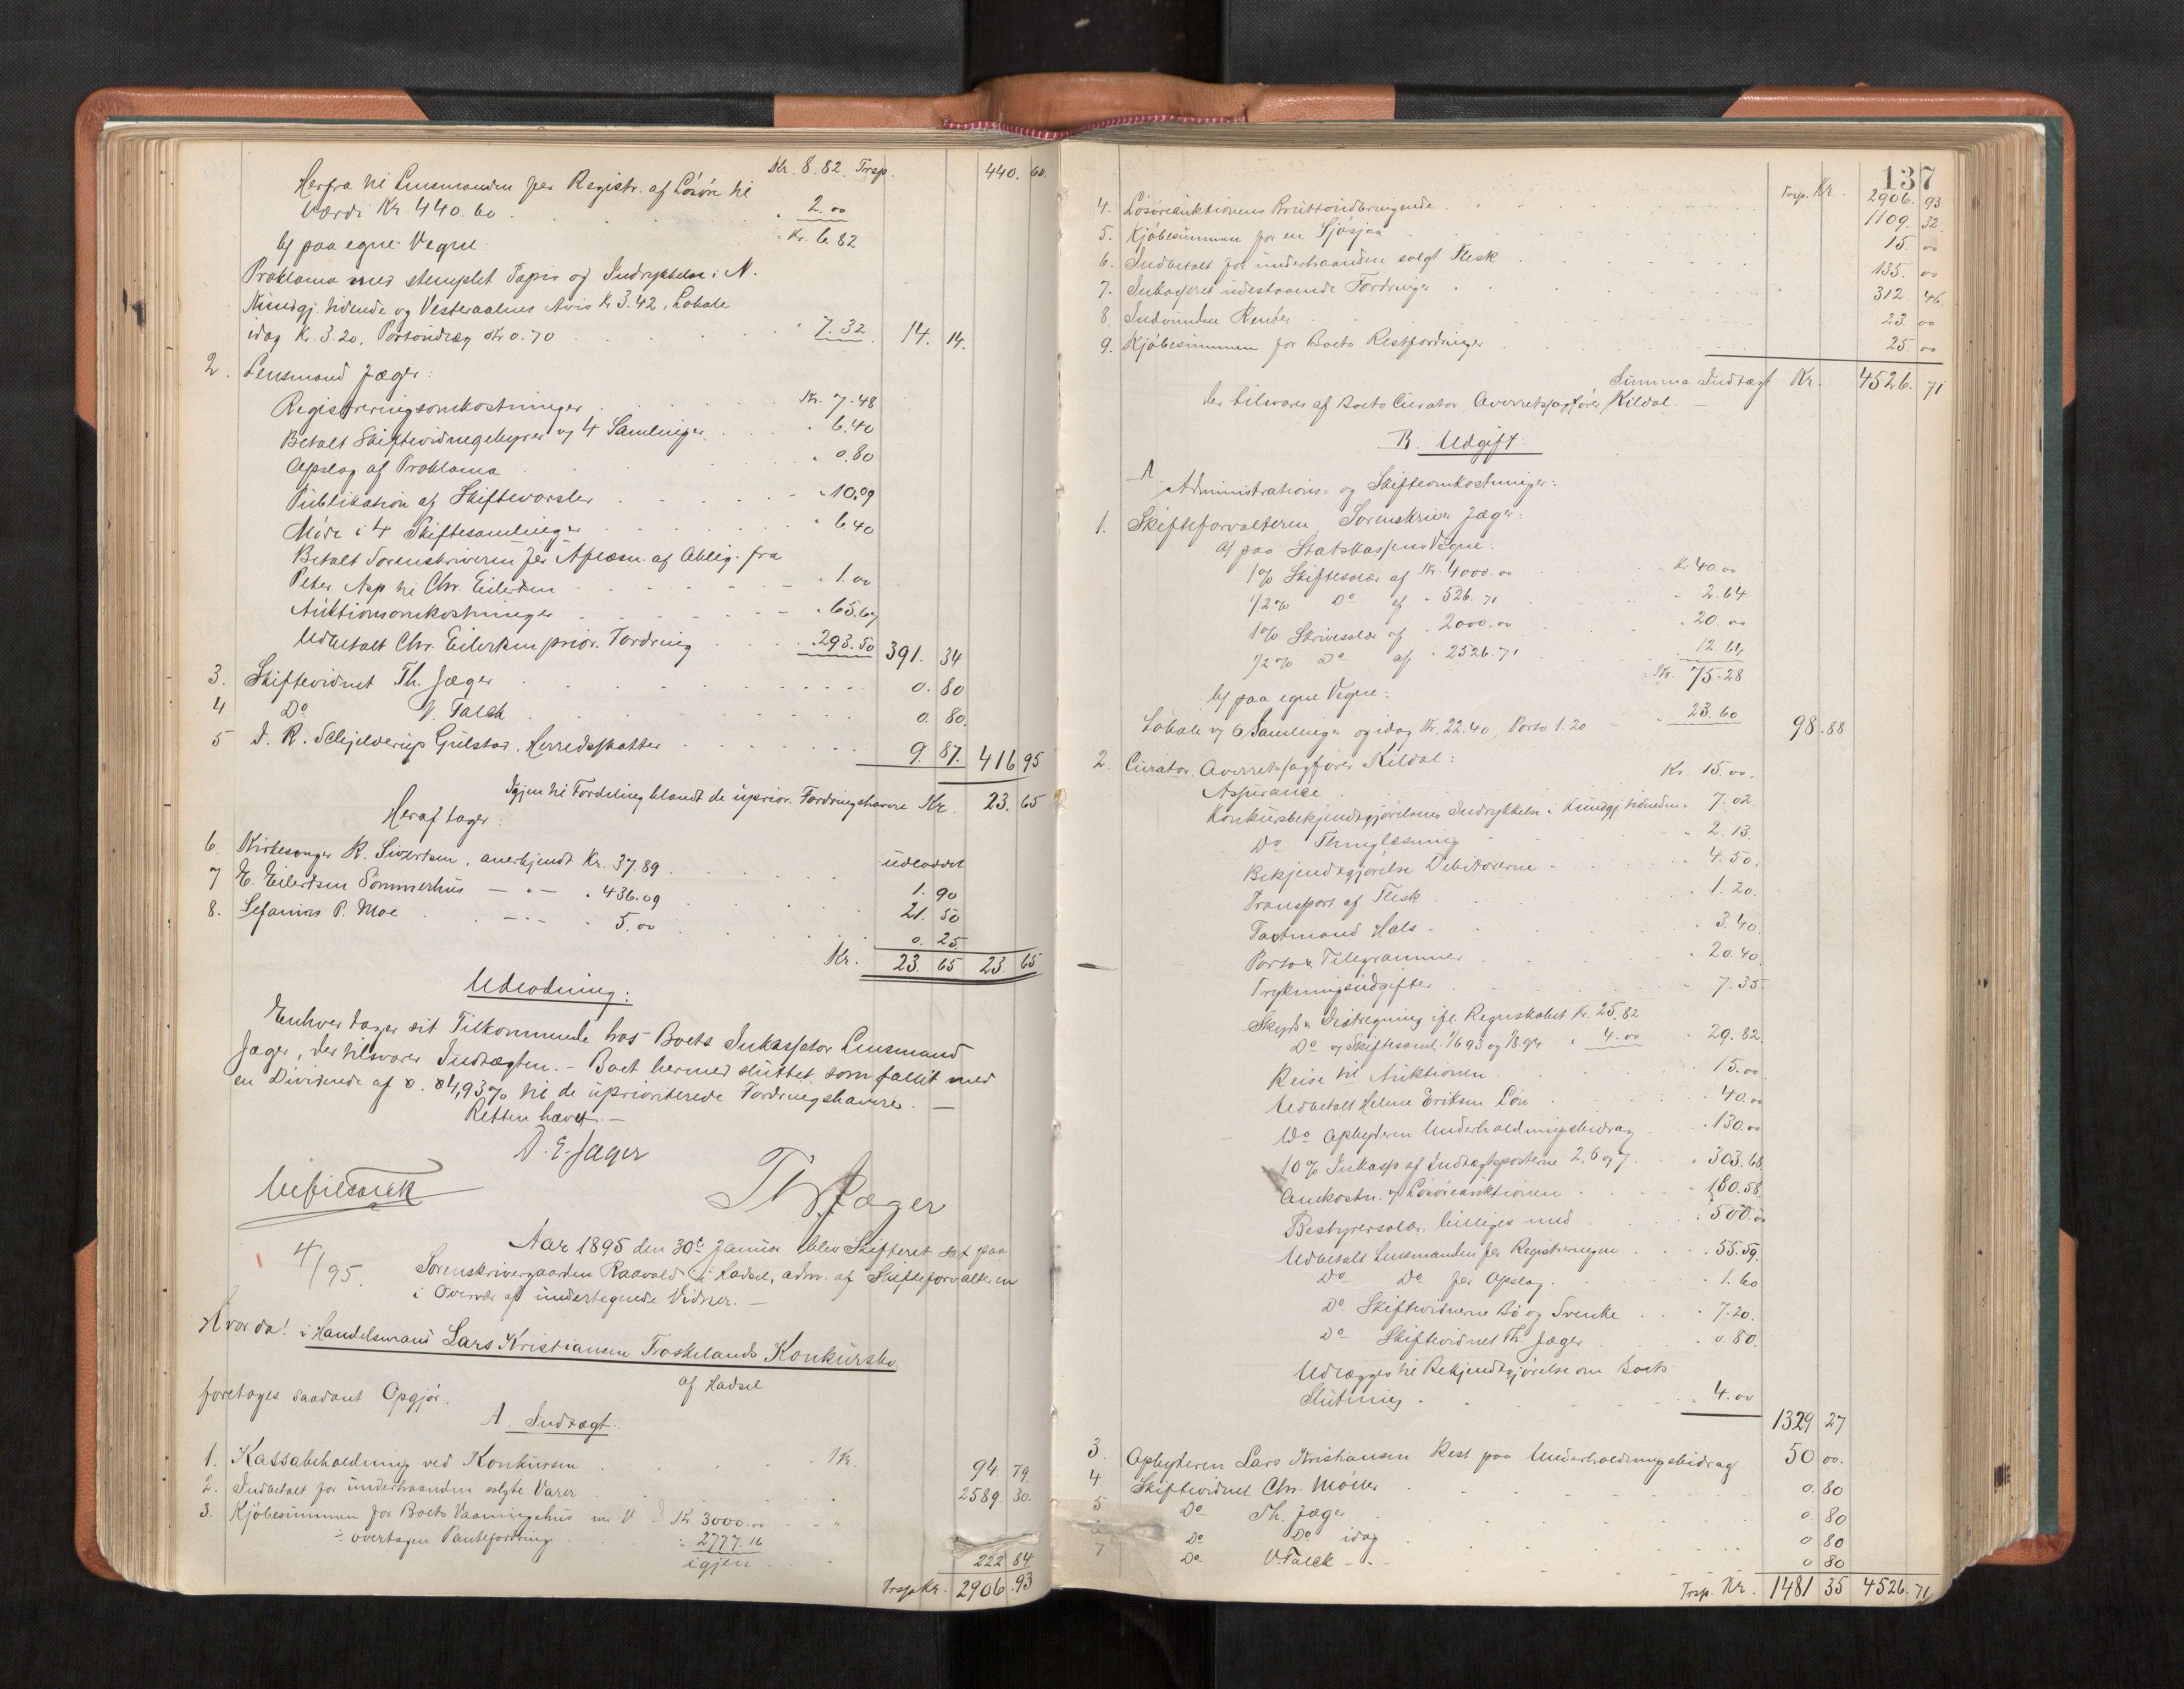 Kr. 8.82. Trsp. 440. 60.
Herfra til Lensmanden for Registr. af Løsøre til
Værdi Kr. 440.60 . . . . " 2.00
" Kr. 6.82
b/ paa egne Vegne:
Proklama med stemplet Papir og Indrykkelse i N.
Kundgj. tidende og Vesteraalens Avis Kr 3.42, Lokale
idag Kr. 3.20, Portoudlæg Kr 0.70 . . . " 7.32 14. 14.
2. Lensmand Jæger:
Registreringsomkostninger . . . Kr. 7.48
Betalt Skiftevidnegebyrer v/ 4 Samlinger . . " 6.40
Opslag af Proklama . . . " 0.80
Publikation af Skiftevarsler . . . " 10.09
Møde i 4 Skiftesamlinger . . . " 6.40
Betalt Sorenskriveren for Aflæsn. af Oblig. fra
Peter Asp til Chr. Eilertsen . . . " 1.00
Auktionsomkostninger . . . " 65.67
Udbetalt Chr. Eilertsen prior. Fordring . . " 293.50 391. 34
3. Skiftevidnet Th. Jæger . . . 0. 80
4 Do V. Falck . . . 0. 80.
5 J. R. Schjelderup Gulstad, Herredsskatter . . . 9. 87. 416 95
Igjen til Fordeling blandt de uprior. Fordringshavere Kr. 23. 65
Heraf tager: udloddet
6. Kirkesanger K. Sivertsen, anerkjendt Kr. 37.89 . . . 1. 90
7 E. Eilertsen Sommerhus — " — " 436.09 . . . 21. 50
8. Sefanias P. Moe . — " — " 5.00 . . . 0. 25.
Kr. 23. 65 23. 65
Udlodning:
Enhver tager sit Tilkommende hos Boets Inkassator Lensmand
Jæger, der tilsvarer Indtægten. – Boet hermed sluttet som fallit med
en Dividende af 0.04,93% til de uprioriterede Fordringshavere. —
Retten hævet. —
A. E. Jæger
Th Jæger
4/95. Aar 1895 den 30te Januar blev Skifteret sat paa
Sorenskrivergaarden Raavold i Hadsel, adm. af Skifteforvalteren
i Overvær af undertegnede Vidner. —
Hvorda! i Handelsmand Lars Kristiansen Froskelands Konkursbo
af Hadsel
foretages saadant Opgjør.
A. Indtægt:
1. Kassabeholdning ved Konkursen . . . Kr. 94. 79.
2. Indbetalt for underhaanden solgte Varer . . . 2589. 30.
3. Kjøbesummen for Boets Vaaningshus m. V. Kr 3000.00
÷ overtagen Pantefordring . " 2777.16
igjen . . . 222 84.
Trsp Kr. 2906.93
137
Trsp. Kr. 2906. 93
4. Løsøreauktionens Bruttoudbringende . . . 1109. 32.
5. Kjøbesummen for en Sjøsjaa . . . 15. 00
6. Indbetalt for underhaanden solgt Flesk . . . 135. 00
7. Inkasseret udestaaende Fordringer . . . 312. 46.
8. Indvundne Renter . . . 23. 00
9. Kjøbesummen for Boets Restfordringer . . . 25. 00
Summa Indtægt Kr. 4526. 71
der tilsvares af Boets Curator, Overretssagfører Kildal. —
B. Udgift:
A
Administrations- og Skifteomkostninger:
1. Skifteforvalteren, Sorenskriver Jæger:
a/ paa Statskassens Vegne:
1% Skiftesalær af Kr. 4000.00 . . Kr. 40.00
1/2% Do af " 526.71 . . " 2.64
1% Skrivesalær af " 2000.00 . . " 20.00
1/2% Do af " 2526.71 . . " 12.64
Kr. 75.28
b/ paa egne Vegne:
Lokale v/ 6 Samlinger og idag Kr. 22.40, Porto 1.20 " 23.60 98.88
2. Curator, Overretssagfører Kildal:
Assurance . . . Kr. 15.00.
Konkursbekjendtgjørelsens Indrykkelse i Kundgj. tidenden " 7.02.
Do Thinglæsning . . . " 2.13
Bekjendtgjørelse Debitorerne . . . " 4.50.
Transport af Flesk . . . " 1.20.
Taxtmand Hals . . . " 3.40.
Porto & Telegrammer . . . " 20.40.
Trykningsudgifter . . . " 7.35
Skyds & Diætregning ifl. Regnskabet Kr. 25.82
Do v/ Skiftesaml. 1/6 93 og 1/8 94 " 4.00 " 29.82.
Reise til Auktionen . . . " 15.00
Udbetalt Helene Eriksen Løn . . . " 40.00
Do Opbyderen Underholdningsbidrag . . " 130.00
10% Inkasso af Indtægtsposterne 2, 6 og 7 . . " 303.68.
Omkostn. v/ Løsøreauktionen . . . " 180.58.
Bestyrersalær, billiges med . . . " 500.00
Udbetalt Lensmanden for Registreringen . . " 55.59.
Do Do for Opslag . . . " 1.60
Do Skiftevidnerne Bø og Svenke . . " 7.20.
Do Skiftevidnet Th. Jæger . . " 0.80.
Udlægges til Bekjendtgjørelse om Boets
Slutning . . . " 4.00
1329 27
3. Opbyderen Lars Kristiansen Rest paa Underholdningsbidrag 50 00.
4. Skiftevidnet Chr. Møller . . . 0. 80
5 Do Th. Jæger . . . 0. 80
Do Do idag . . . 0 80
7 Do V. Falck – " – . . . 0 80
Trsp. Kr. 1481 35 4526. 71